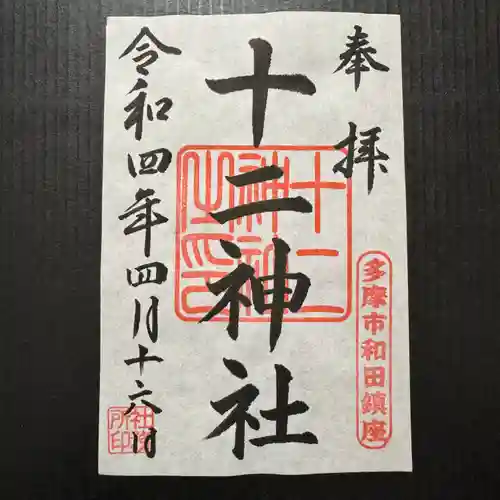 奉拝
多摩市和田鎮座
十二神社
十二神社之印
令和四年四月十六日